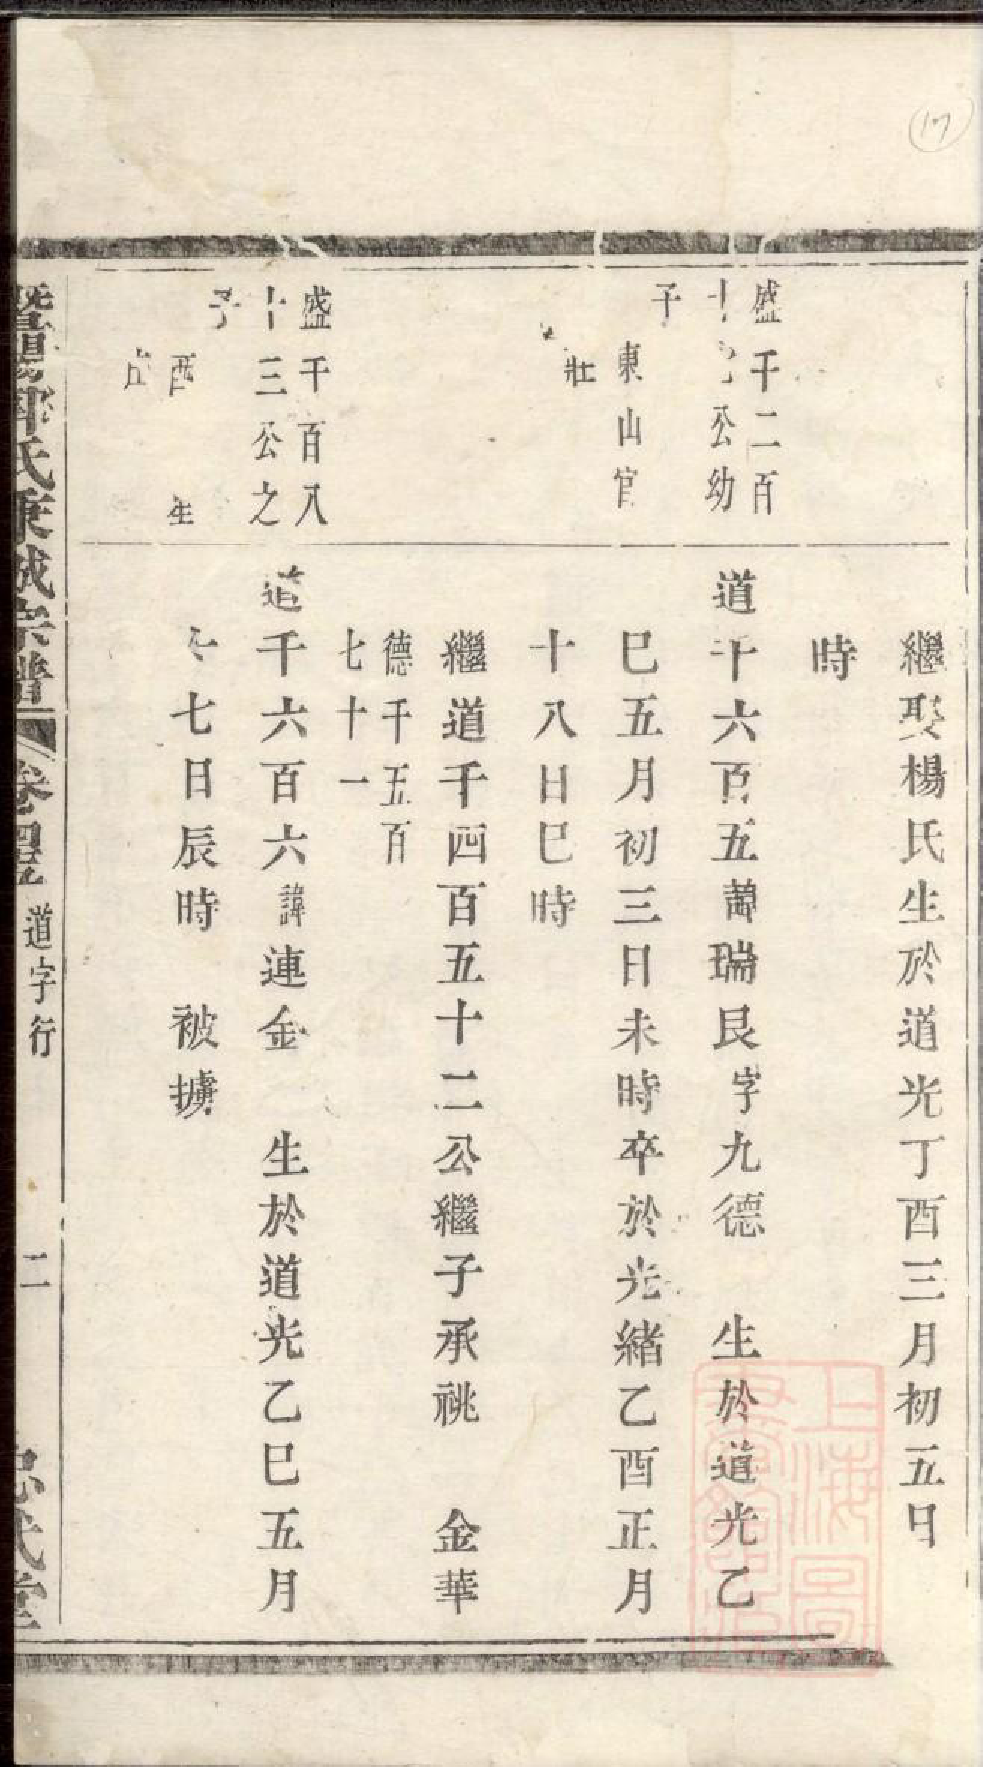 17
繼娶楊氏生於道光丁酉三月初五日
時
盛千二百
公幼
子
東山官
壯
道千六百五諱瑞艮字九德 生於道光乙
巳五月初三日未時卒於光緒乙酉正月
十八日巳時
繼道千四百五十二公繼子承祧 金華
德千五百
七十一
盛千百八
十三公之
子
酉 生
道千六百六諱連金 生於道光乙巳五月
七日辰時 被擄
氏東城宗譜 卷四 道字行 二 忠武堂
上海圖書館藏